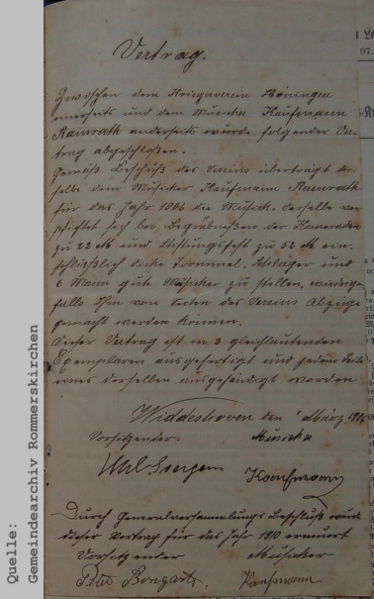 Vertrag.
Zwischen dem Kriegerverein Höningen
einerseits und dem Musiker Kaufmann
Ramrath anderseits wurde folgender Ver-
trag abgeschlossen.
Gemäß Beschluß des Vereins überträgt der-
selbe dem Musiker Kaufmann Ramrath
für das Jahr 1906 die Musik. Derselbe ver-
pflichtet sich bei Begräbnißen der Kameraden
zu 22 M und Stiftungsfest zu 52 M ein-
schließlich dicke Trommel, Schläger und
6 Mann gute Musiker zu stellen, widrigen-
falls Ihm von Seiten des Vereins Abzüge
gemacht werden können.
Dieser Vertrag ist in 2 gleichlautenden
Exemplaren ausgefertigt und jedem Theile
eines derselben ausgehändigt worden
Widdeshoven den 1 März
Vorsitzender Musiker
Kaufmann
Durch Generalversammlungs Beschluß wird
dieser Vertrag für das Jahr 1910 erneuert
Vorsitzender Musiker
Peter Bongartz. Kaufmann
97.
Quelle:
Gemeindearchiv Rommerskirchen